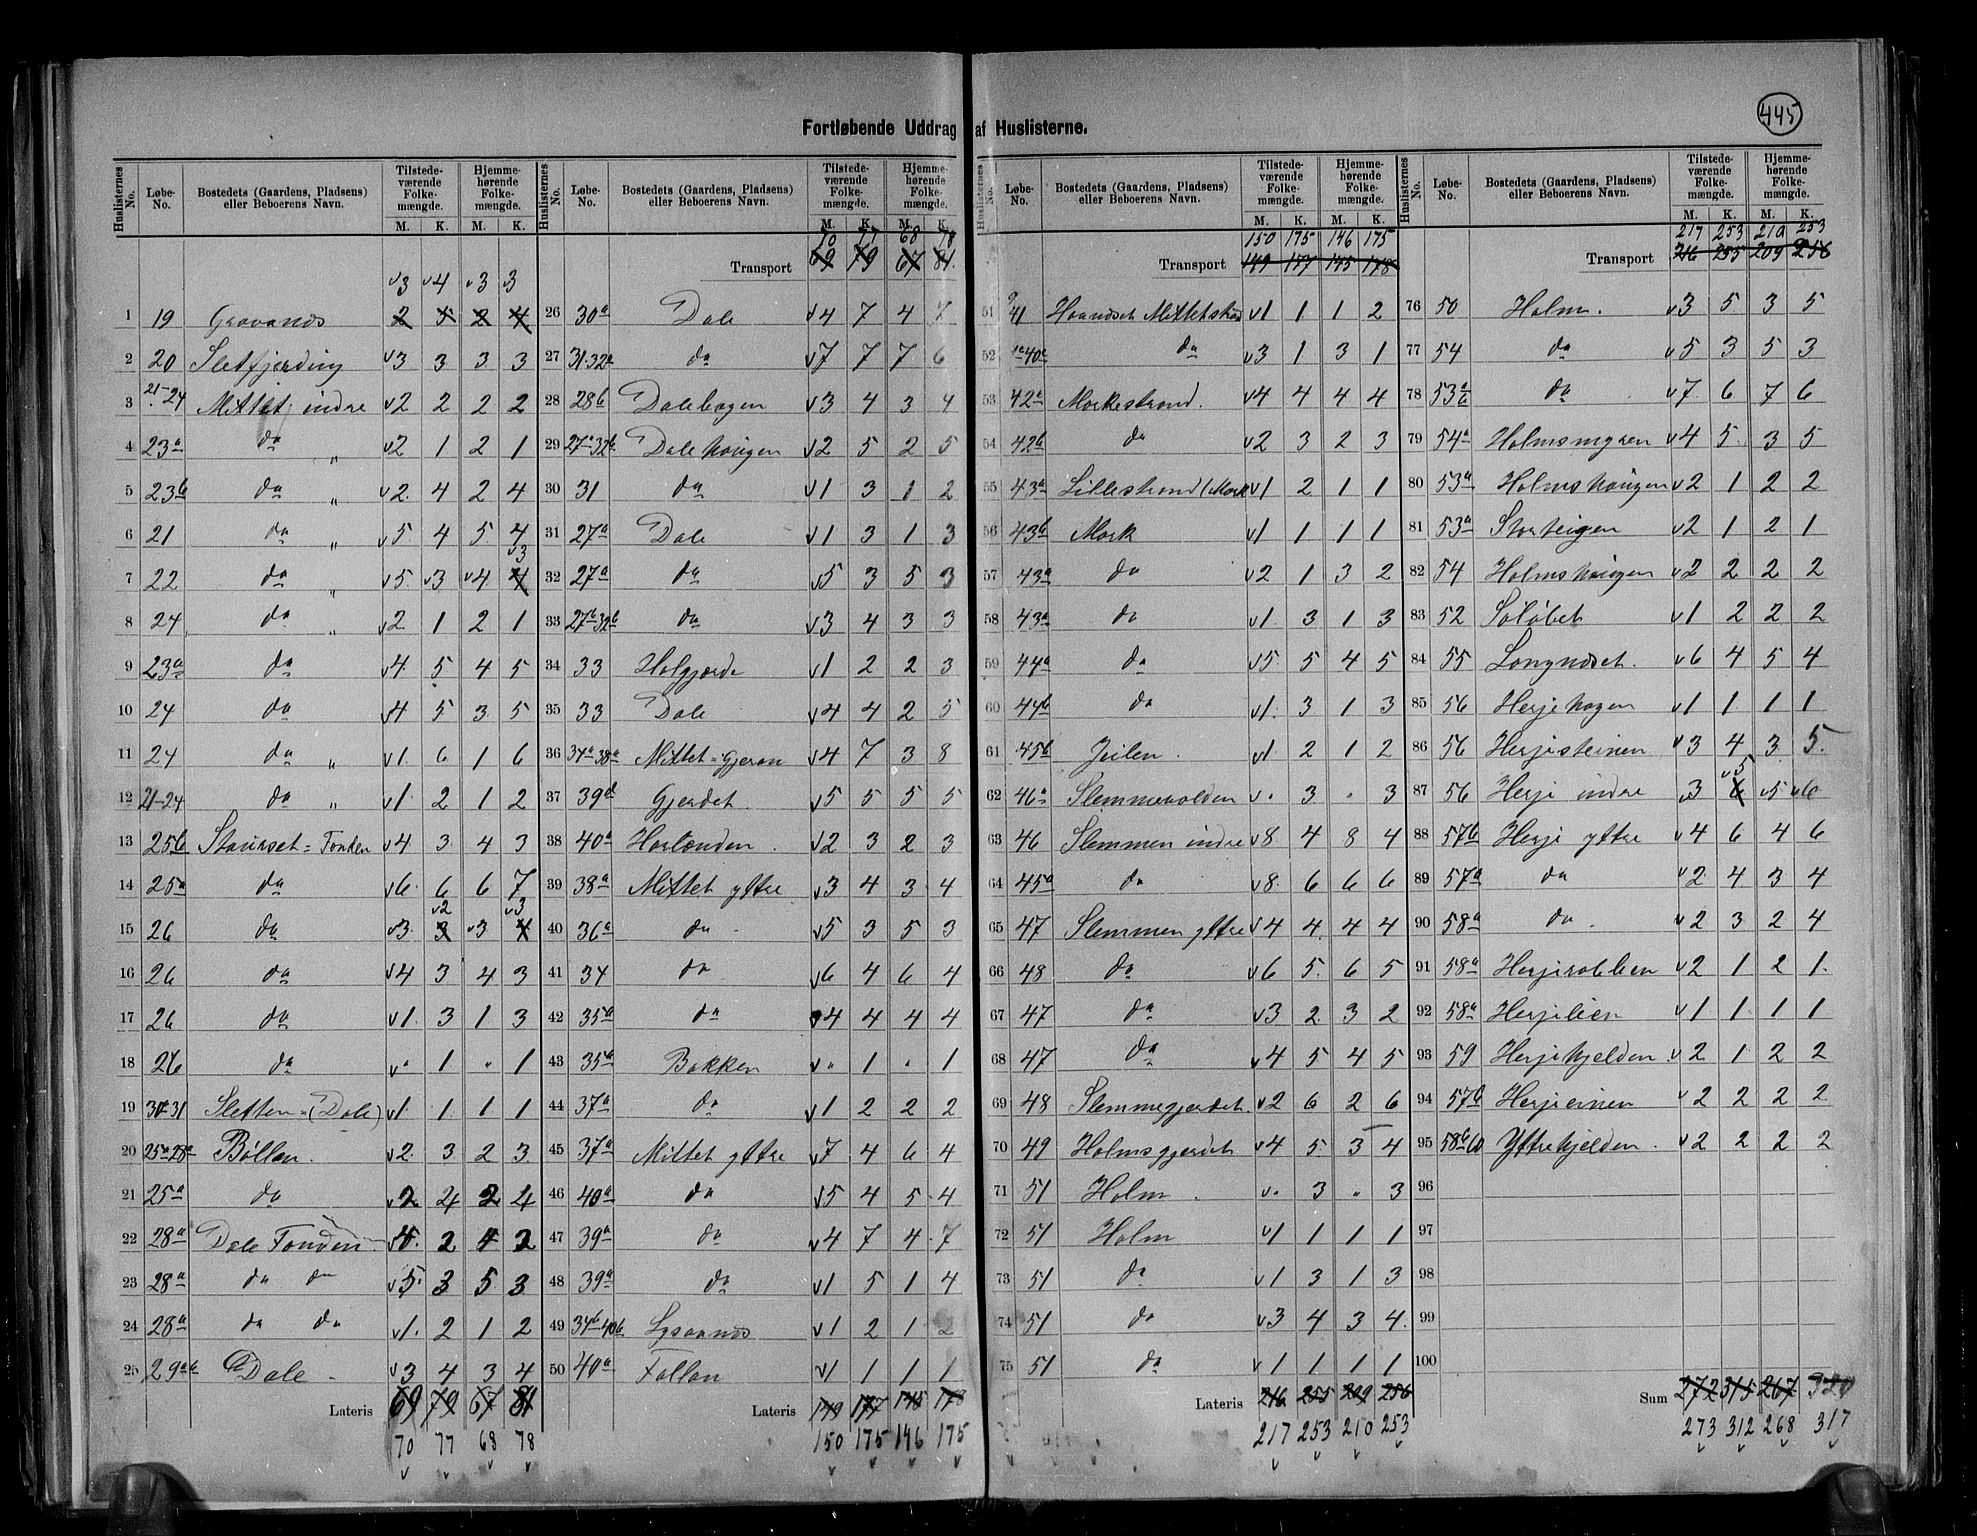 445
Fortløbende Uddrag af Huslisterne.
Huslisternes No. Løbe-No. Bostedets (Gaardens, Pladsens) eller Beboerens Navn. Tilstedeværende Folkemængde. M. K. Hjemmehørende Folkemængde. M. K.
v3 v4 v3 3
1 19 2 5 2 4
2 20 Sletfjerding v3 3 3 3
3 21-24 Mittet indre v2 2 2 2
4 23a da " v2 1 2 1
5 23b da " v2 4 2 4
6 21 da " v5 4 5 4
7 22 da " v5 v3 v4 4 v3
8 24 da " v2 1 2 1
9 23a da v4 5 4 5
10 24 da v4 5 3 5
11 24 da " v1 6 1 6
12 21-24 da " v1 2 1 2
13 25b Staurset = Fonden v4 3 4 3
14 25a da v6 6 6 7
15 26 da v3 3 v2 v3 4 v3
16 26 da v4 3 4 3
17 26 da v1 3 1 3
18 26 da v" 1 " 1
19 30-31 Sletten = (Dale) v1 1 1 1
20 25a-28a Bøllan. v2 3 2 3
21 25a da v2 4 2 4
22 28a Dale Fonden v4 2 4 2
23 28a da da v5 3 5 3
24 28a da da v1 2 1 2
25 29a-b Dale v3 4 3 4
Lateris 69 79 67 81
70 77 68 78
Huslisternes No. Løbe-No. Bostedets (Gaardens, Pladsens) eller Beboerens Navn. Tilstedeværende Folkemængde. M. K. Hjemmehørende Folkemængde. M. K.
70 77 68 78
Transport 69 79 67 81
26 30a Dale v4 7 4 7
27 31-32a da v7 7 7 6
28 28b Dalehagen v3 4 3 4
29 27a-32b Dalehaugen v2 5 2 5
30 31 da v1 3 1 2
31 27a Dale v1 3 1 3
32 27a da v5 3 5 3
33 27b-32b da v3 4 3 3
34 33 Holgjerde v1 2 2 3
35 33 Dale v4 4 2 5
36 34a-38a Mittet = Gjeran v4 7 3 8
37 39d Gjerdet v5 5 5 5
38 40a v2 3 2 3
39 38a Mittet yttre v3 4 3 4
40 36a da v5 3 5 3
41 34 da v6 4 6 4
42 35a da v4 4 4 4
43 35a Bakken v" 1 " 1
44 37a da v1 2 2 2
45 37a Mittet yttre v7 4 6 4
46 40a da v5 4 5 4
47 39a da v4 7 4 7
48 39a da v1 5 1 4
49 34b-40b v1 2 1 2
50 40a Follan v1 1 1 1
Lateris 149 177 145 178
150 175 146 175
Huslisternes No. Løbe-No. Bostedets (Gaardens, Pladsens) eller Beboerens Navn. Tilstedeværende Folkemængde. M. K. Hjemmehørende Folkemængde. M. K.
150 175 146 175
Transport 149 177 145 178
51 41 v1 1 1 2
52 40a da v3 1 3 1
53 42a Morkestrand. v4 4 4 4
54 42b da v2 3 2 3
55 43a Lillestrand (Mork v1 2 1 1
56 43b Mork v1 1 1 1
57 43a da v2 1 3 2
58 43a da v1 3 1 3
59 44a da v5 5 4 5
60 44b da v1 3 1 3
61 45b Jeilen. v1 2 1 2
62 46a Slemmevolden v" 3 " 3
63 46 Slemmen indre v8 4 8 4
64 45a da v8 6 6 6
65 47 Slemmen yttre v4 4 4 4
66 48 da v6 5 6 5
67 47 da v3 2 3 2
68 47 da v4 5 4 5
69 48 Slemmegjerdet v2 6 2 6
70 49 Holmsgjerdet v4 5 3 4
71 51 Holm v" 3 " 3
72 51 Holm v1 1 1 1
73 51 da v1 3 1 3
74 51 da v3 4 3 4
75 51 da v1 1 1 1
Lateris 216 255 209 256
217 253 210 253
Huslisternes No. Løbe-No. Bostedets (Gaardens, Pladsens) eller Beboerens Navn. Tilstedeværende Folkemængde. M. K. Hjemmehørende Folkemængde. M. K.
217 253 210 253
Transport 216 255 209 256
76 50 Holm. v3 5 3 5
77 54 da v5 3 5 3
78 53a b da v7 6 7 6
79 54a Holmsmyren v4 5 3 5
80 53a Holmshaugen v2 1 2 2
81 53a Storteigen v2 1 2 1
82 54 Holmshaugen v2 2 2 2
83 52 Soløbet v1 2 2 2
84 55 Langnæset. v6 4 5 4
85 56 Herjehagen v1 1 1 1
86 56 Herjesteinen v3 4 3 5
87 56 Herje indre v3 6 v5 v5 v6
88 57b Herje yttre v4 6 4 6
89 57a da v2 4 3 4
90 58a da v2 3 2 4
91 58a v2 1 2 1
92 58a Herjelien v1 1 1 1
93 59 Herjekjelden v2 1 2 2
94 57b v2 2 2 2
95 58b-60 Yttrekjelden v2 2 2 2
96
97
98
99
100
Sum 272 315 267 320
273 312 268 317